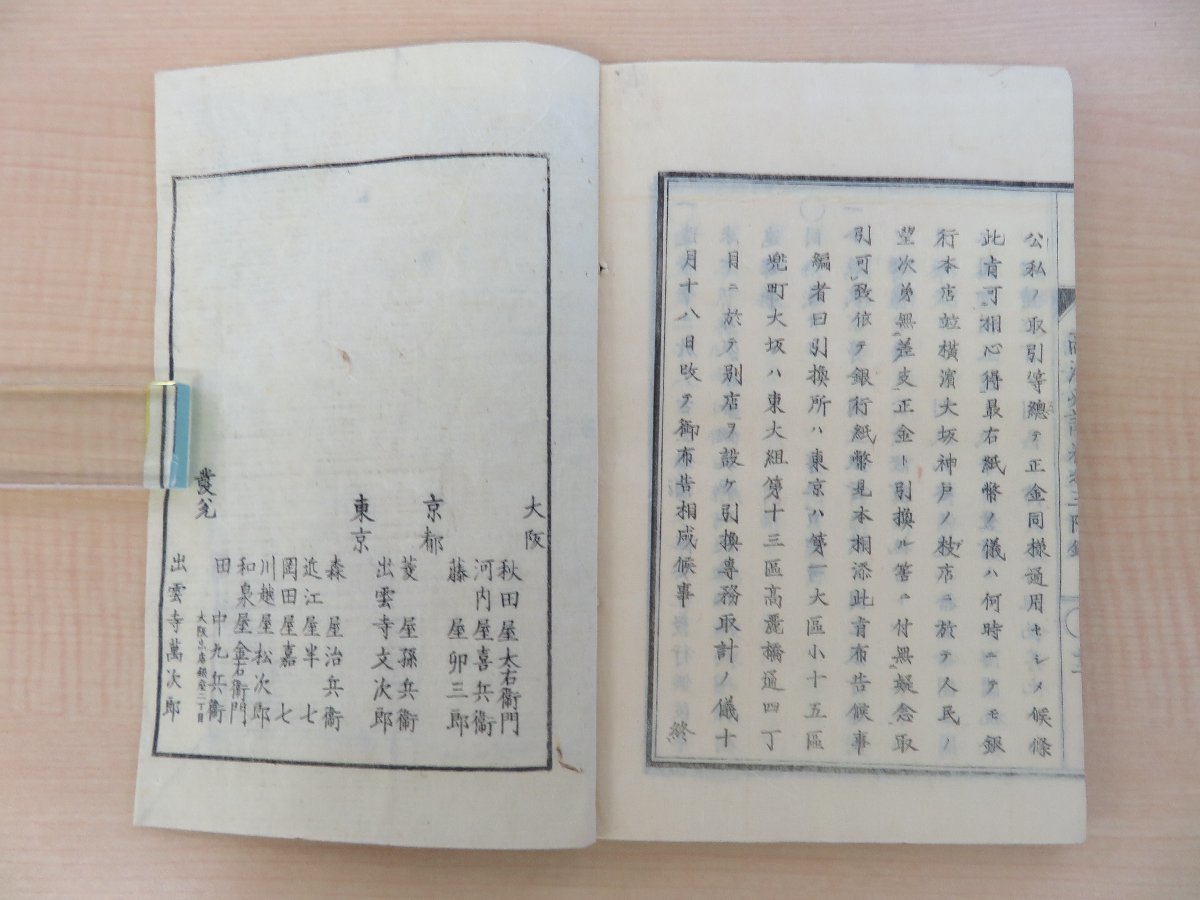 公私ノ取引等總テ正金同様通用セシメ候條
此旨可相心得最右紙幣ノ儀ハ何時ニテモ銀
行本店並横濱大坂神戸ノ枝店ニ於テ人民ノ
望次第無差支正金ト引換ル筈ニ付無疑念取
引可致依テ銀行紙幣見本相添此旨布告候事
編者曰引換所ハ東京ハ第一大區小十五區
兜町大坂ハ東大組第十三區高麗橋通四丁
目ニ於テ別店ヲ設ケ引換専務取計ノ儀十
月十八日改テ御布告相成候事
終
大阪
秋田屋太右衛門
河内屋喜兵衛
京都
藤屋卯三郎
菱屋孫兵衛
出雲寺文次郎
東京
森屋治兵衛
近江屋半七
岡田屋嘉七
川越屋松次郎
和泉屋金右衛門
田中九兵衛
發兌
大阪出店銀座二丁目
出雲寺萬次郎